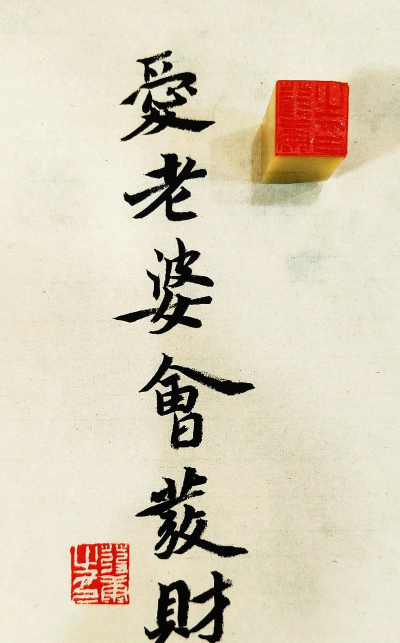 愛老婆會發財